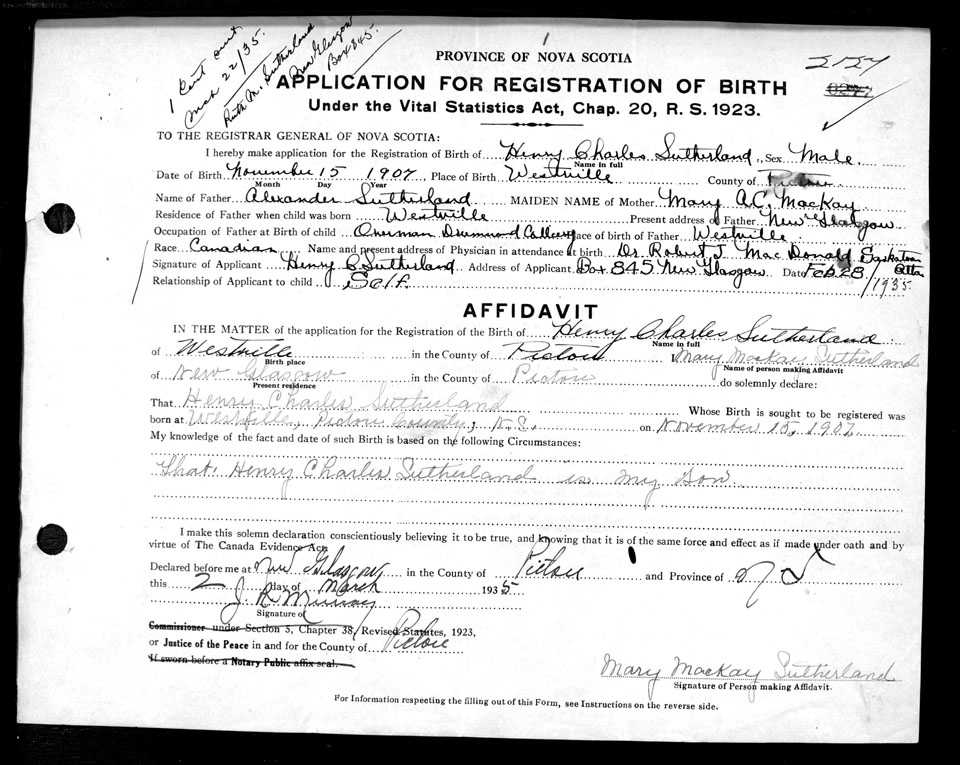 1 Cert sent
Mch 22/35.
Ruth M. Sutherland
New Glasgow
Box 845.
1
PROVINCE OF NOVA SCOTIA
APPLICATION FOR REGISTRATION OF BIRTH
Under the Vital Statistics Act, Chap. 20, R. S. 1923.
TO THE REGISTRAR GENERAL OF NOVA SCOTIA:
I hereby make application for the Registration of Birth of Henry Charles Sutherland, Sex Male.
Name in full
Date of Birth November 15 1907, Place of Birth Westville County of Pictou
Month Day Year
Name of Father Alexander Sutherland MAIDEN NAME of Mother Mary A.C. MacKay
Residence of Father when child was born Westville Present address of Father New Glasgow
Occupation of Father at Birth of child Overman Drummond Colliery Place of birth of Father Westville
Race Canadian Name and present address of Physician in attendance at birth Dr. Robert J. MacDonald Saskatoon
Signature of Applicant Henry C. Sutherland Address of Applicant Box 845 New Glasgow Date Feb. 28/1935
Relationship of Applicant to child Self.
AFFIDAVIT
IN THE MATTER of the application for the Registration of the Birth of Henry Charles Sutherland.
Name in full
of Westville in the County of Pictou I Mary MacKay Sutherland
Birth place Name of person making Affidavit
of New Glasgow in the County of Pictou do solemnly declare:
Present residence
That Henry Charles Sutherland Whose Birth is sought to be registered was
born at Westville, Pictou County, N.S. on November 15, 1907
My knowledge of the fact and date of such Birth is based on the following Circumstances:
That Henry Charles Sutherland is my Son
I make this solemn declaration conscientiously believing it to be true, and knowing that it is of the same force and effect as if made under oath and by
virtue of The Canada Evidence Act.
Declared before me at New Glasgow in the County of Pictou and Province of N S
this 2 day of March 1935
J R Murray
Signature of
Commissioner under Section 5, Chapter 38, Revised Statutes, 1923,
or Justice of the Peace in and for the County of Pictou
If sworn before a Notary Public affix seal.
Mary MacKay Sutherland
Signature of Person making Affidavit.
For Information respecting the filling out of this Form, see Instructions on the reverse side.